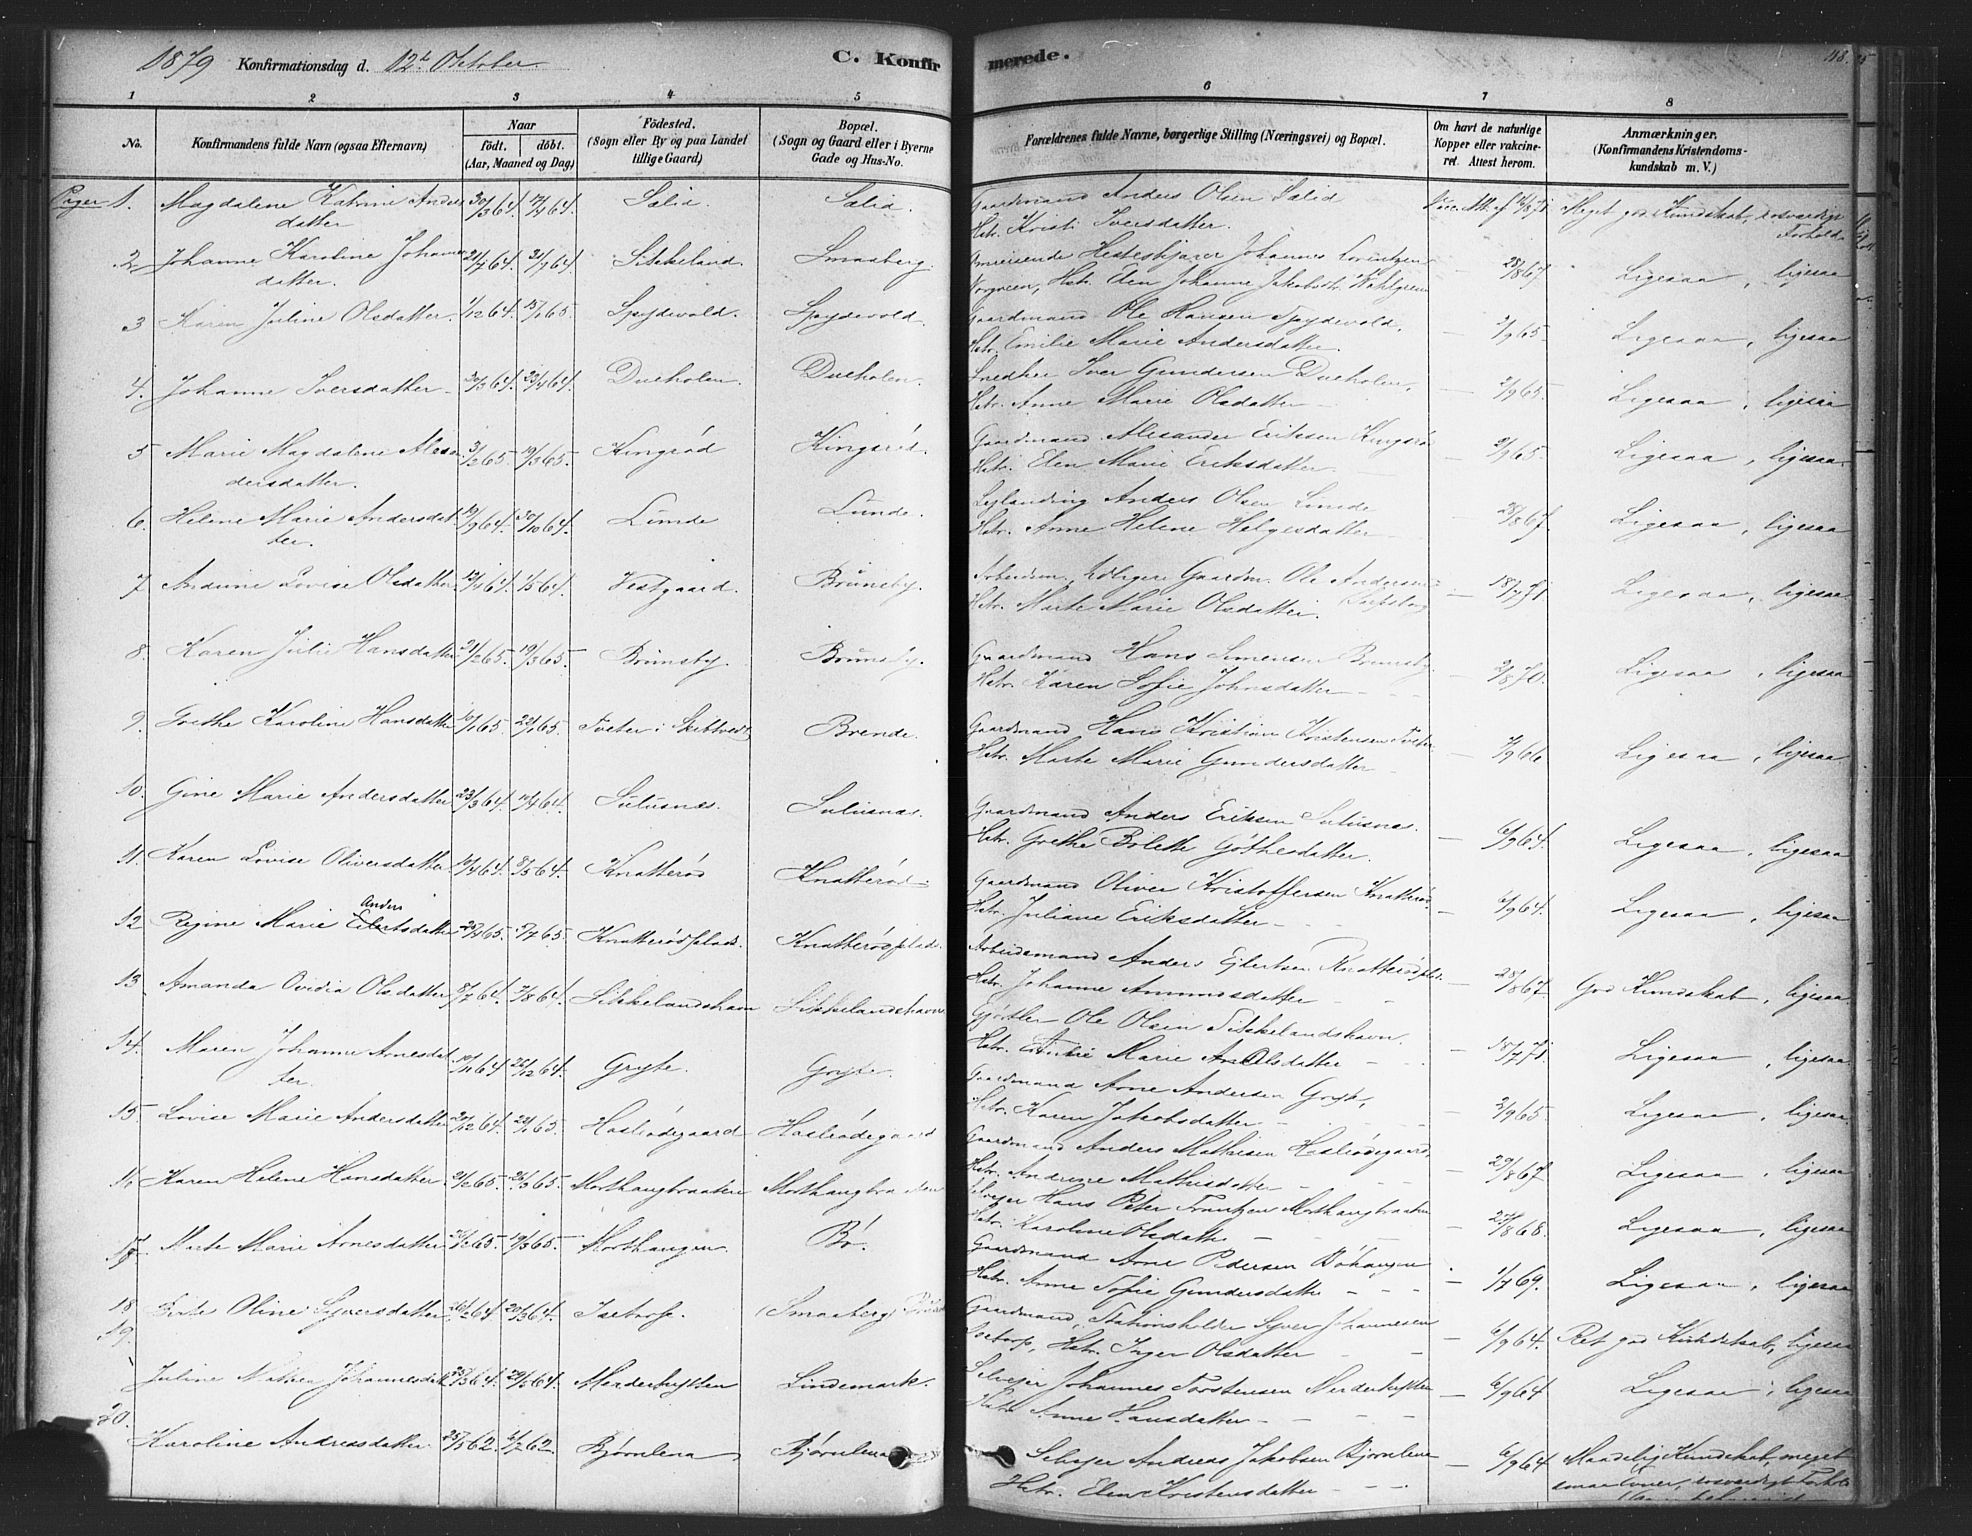 1879 Konfirmationsdag d. 12te October C. Konfirmerede. 118.
1 2 3 4 5 6 7 8
No. Konfirmandens fulde Navn (ogsaa Efternavn) Naar født. døbt. (Aar, Maaned og Dag) Födested. (Sogn eller By og paa Landet tillige Gaard) Bopæl. (Sogn og Gaard eller i Byerne Gade og Hus-No. Forældrenes fulde Navne, borgerlige Stilling (Næringsvei) og Bopæl. Om havt de naturlige Kopper eller vakcineret. Attest herom. Anmærkninger. (Konfirmandens Kristendomskundskab m. V.)
Piger 1. Magdalene Katrine Andersdatter 30/3 64. 17/4 64. Sælid. Sælid. Gaardmand Anders Olsen Sælid Hstr. Kristi Iversdatter. Meget god Kundskab, rosværdigt Forhold
2. Johanne Karoline Johannesdatter. 21/7 64. 31/7 64. Sikkeland. Smaaberg. Omreisende Hesteskjærer Johannes Lorentzen Norgreen, Hstr. Elen Johanne Jakobsdtr. Wahlgreen — 28/8 67. Ligesaa, ligesaa
3 Karen Juline Olsdatter. 1/12 64. 15/1 65. Spydevold. Spydevold. Gaardmand Ole Hansen Spydevold, Hstr. Emilie Marie Andersdatter. — 2/9 65. Ligesaa, ligesaa
4. Johanne Iversdatter. 30/3 64. 23/4 64. Dueholen. Dueholen. Snedker Iver Gundersen Dueholen, Hstr. Anne Marie Olsdatter — 2/9 65. Ligesaa, ligesaa
5 Marie Magdalene Alexandersdatter. 3/2 65. 19/3 65. Kingrød Kingsrød. Gaardmand Alexander Eriksen Kingsrød Hstr. Elen Marie Eriksdatter. — 2/9 65. Ligesaa, ligesaa.
6. Helene Marie Andersdatter. 19/9 64. 30/10 64. Lunde Lunde. Leilænding Anders Olsen Lunde Hstr. Anne Helene Helgesdatter — 28/8 67. Ligesaa, ligesaa
7 Andrine Lovise Olsdatter 12/4 64. 1/5 64. Vestgaard. Brunsby. Arbeidsm. tidligere Gaardm. Ole Andersen Hstr. Marte Marie Olsdatter. — 18/7 71 Ligesaa, ligesaa.
8. Karen Julie Hansdatter 21/2 65. 19/3 65. Brunsby. Brunsby. Gaardmand Hans Simensen Brunsby Hstr. Karen Sofie Johnsdatter — 2/8 70. Ligesaa, ligesaa
9. Grethe Karoline Hansdatter 10/1 65. 22/1 65. Tveter i Skibtvedt Brende. Gaardmand Hans Kristian Kristensen Tveter Hstr. Marte Marie Gundersdatter — 7/9 66 Ligesaa, ligesaa
10. Gine Marie Andersdatter 23/3 64. 17/4 64. Sulusnæs. Sulusnæs. Gaardmand Anders Eriksen Sulusnæs. Hstr. Grethe Bolette Gøthesdatter. — 6/9 64. Ligesaa, ligesaa
11. Karen Lovise Oliversdatter. 10/4 64. 8/5 64. Knatterød Knatterød. Gaardmand Oliver Kristoffersen Knatterød. Hstr. Juliane Eriksdatter — 6/9 64. Ligesaa, ligesaa
12 Regine Marie Anders Eilertsdatter 5/7 65. Knatterødplads. Knatterødplads. Arbeidsmand Anders Ejlertsen Knatterødplds. Hstr. Johanne Amundsdatter — 28/8 67 God Kundskab, ligesaa.
13. Amanda Ovidia Olsdatter 8/7 64. 7/8 64. Sikkelandshavn Sikkelandshavn. Gjørtler Ole Olsen Sikkelandshavn. Hstr. Marie Olsdatter — 18/7 71. Ligesaa, ligesaa.
14. Maren Johanne Arnesdatter. 10/11 64 26/12 64. Gryte. Gryte. Gaardmand Arne Andersen Gryte, Hstr. Karen Jakobsdatter — 2/9 65. Ligesaa, ligesaa
15. Lovise Marie Andersdatter 20/12 64. 29/1 65. Haslrødegaard Haslrødegaard Gaardmand Anders Mathisen Haslrødegaard. Hstr. Andrine Mathisdatter — 29/8 67 Ligesaa, ligesaa
16 Karen Helene Hansdatter. 21/2 65. 26/3 65. Morthaugbraaten Morthaugbraaten Selvejer Hans Peter Frantzen Morthaugbraaten Hstr. Karoline Olsdatter — 27/8 68. Ligesaa, ligesaa
17. Marte Marie Arnesdatter 19/3 65. Morthaugen. Bö. Gaardmand Arne Pedersen Böhaugen Hstr. Anne Sofie Gundersdatter — 1/7 69. Ligesaa, ligesaa
18 Berte Oline Syversdatter 20/3 64. Isetorp. (Smaaberg) Gaardmand, Stationsholder Syver Johannesen Isetorp, Hstr. Inger Olsdatter — 6/9 64. Ret god Kundskab, ligesaa
19. Juline Mathea Johannesdatter 29/5 64. Lindemark. Selvejer Johannes Torstensen Hstr. Anne Hansdatter — 6/9 64 Ligesaa, ligesaa
20. Karoline Andreasdatter. 25/5 62. Bjørnlena Bjørnlena Selvejer Andreas Jakobsen Bjørnlene Hstr. Elen Kristensdatter — 6/9 64 Maadelig Kundskab, meget smaa Evner, rosværdigt Forhold